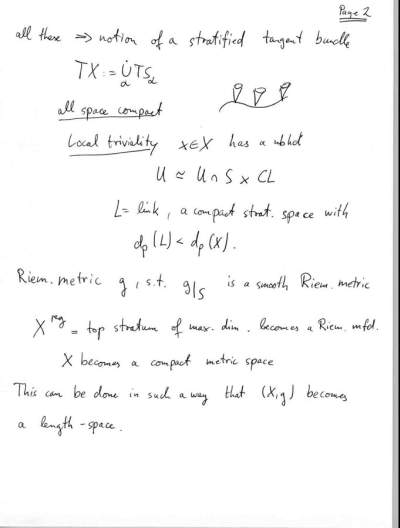 Page 2
all these => notion of a stratified tangent bundle
TX := ∪̇_α TS_α
all space compact
Local triviality x∈X has a nbhd
U ≈ U ∩ S × CL
L = link, a compact strat. space with
dp(L) < dp(X).
Riem. metric g, s.t. g|S is a smooth Riem. metric
X^reg = top stratum of max. dim. becomes a Riem. mfd.
X becomes a compact metric space
This can be done in such a way that (X,g) becomes
a length-space.